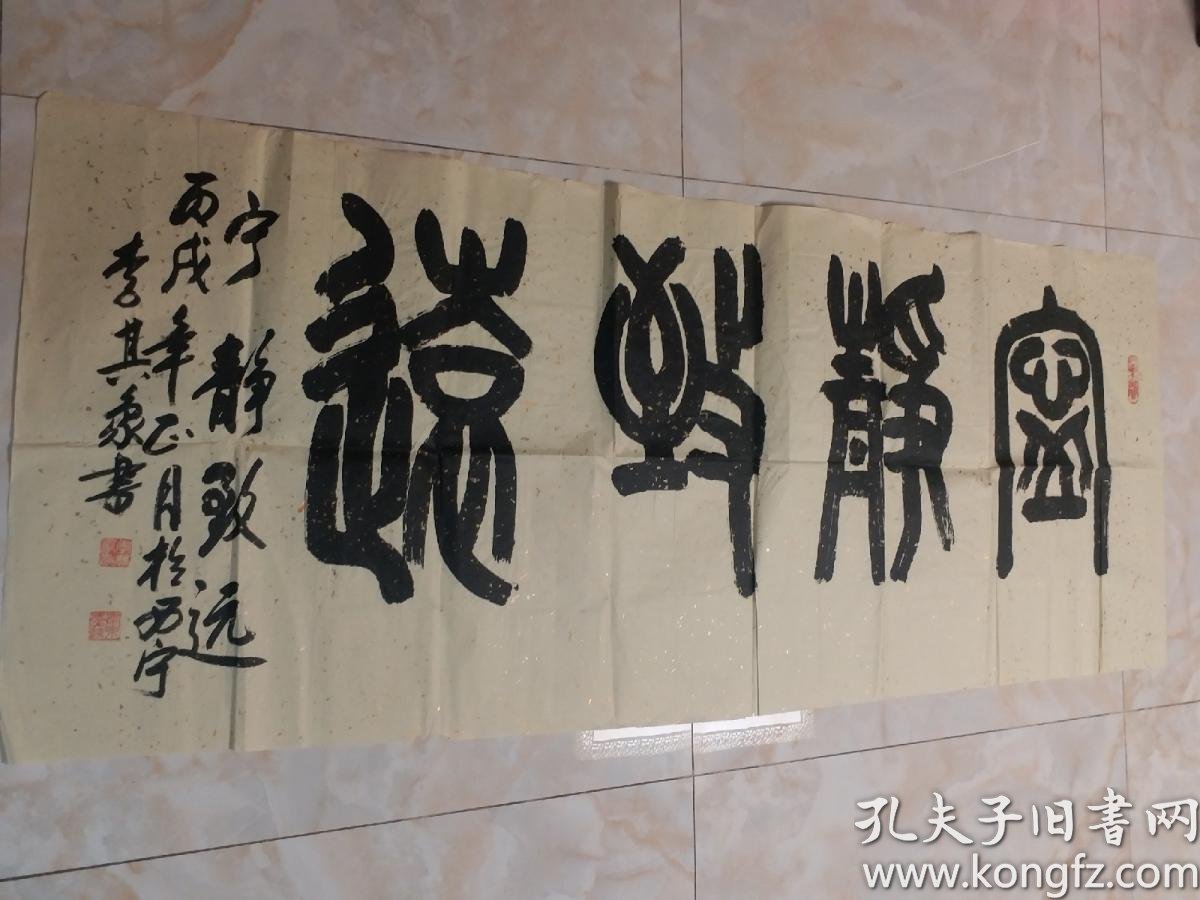 寧靜致遠
宁静致远
丙戌年正月於西宁
李其象书
孔夫子旧書网
www.kongfz.com